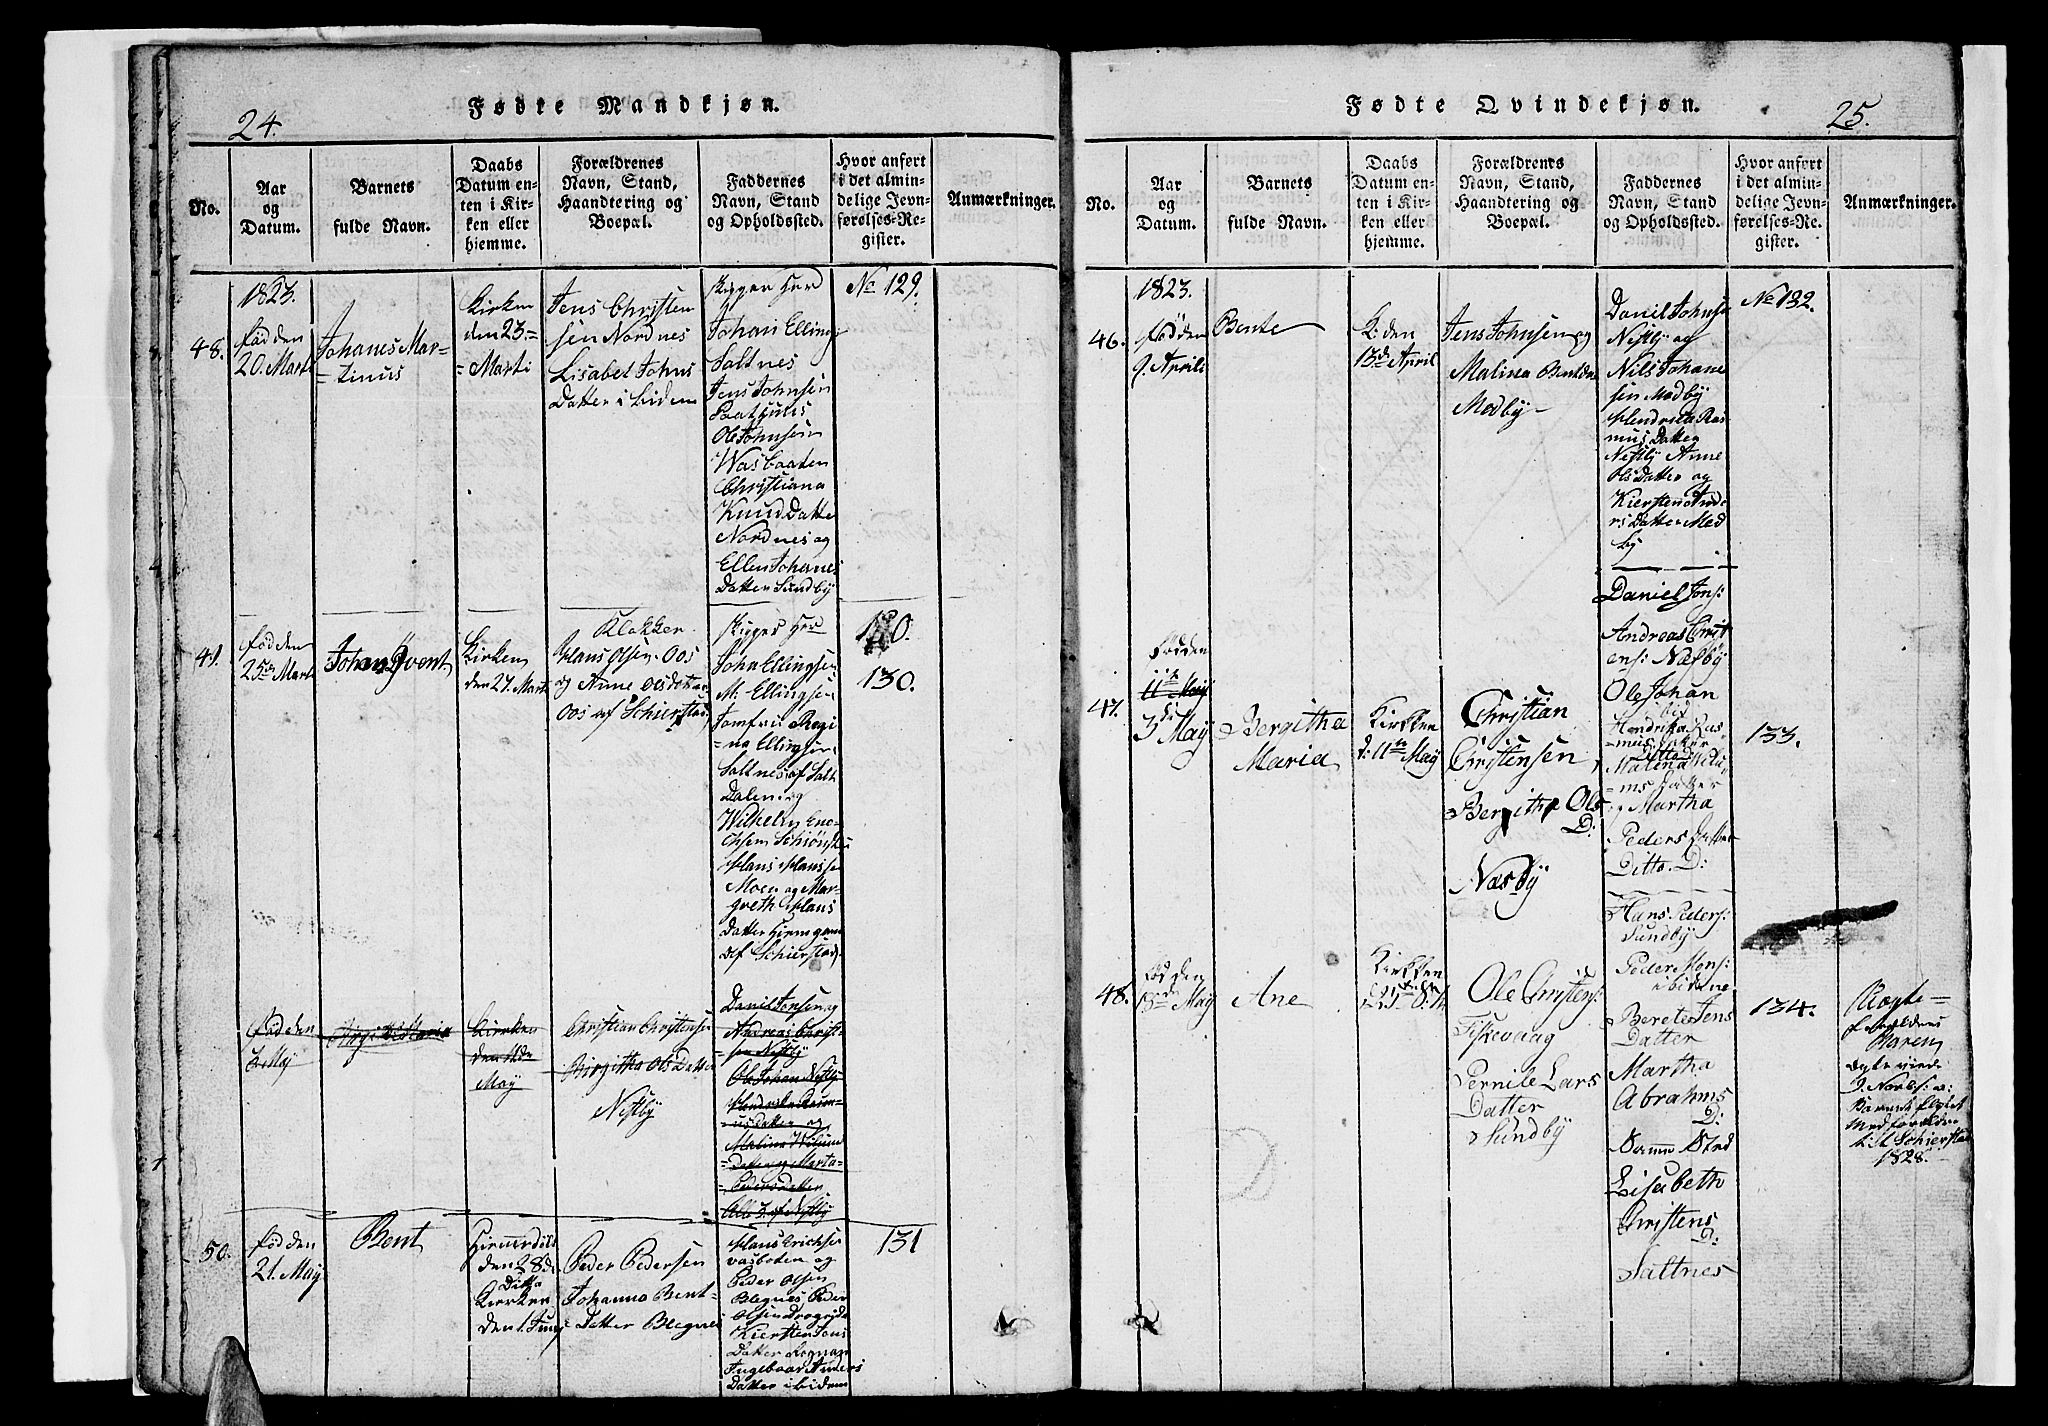 24.
Fødte Mandkjøn.
No.
Aar
og
Datum.
Barnets
fulde Navn.
Daabs
Datum en-
ten i Kir-
ken eller
hjemme.
Forældrenes
Navn, Stand,
Haandtering og
Boepæl.
Faddernes
Navn, Stand
og Opholdssted.
Hvor anført
i det almin-
delige Jevn-
førelses-Re-
gister.
Anmærkninger.
48.
1823.
fød den
20. Marti
Johanes Mar-
= tinus
Kirken
den 23. =
= Marti
Jens Christen
sen Nordnes
Lisabet Johns
Datter ibidem
Skipper Her
Johan Elling
Saltnes
Jens Johnsen
Ole Johnsen
Wasbaaten
Christiana
Knud Datte
Nordnes og
Ellen Johanes
Datter Sundby
No 129.
49.
fød den
25de Marti
Johan Qvent
Kirken
den 27. Marti
Klokker
Hans Olsen Oos
og Anne Olsdatter
Oos af Schierstad
Skipper Her
John Ellingsen
M. Ellingsen
Jomfru Regi
= na Ellingsen
Saltnes af Salt
Dalen og
Wilhelm Eno-
chsen
Hans Hanssen
Moen og Mar-
greth Hans
Datter
af Schierstad
130.
fød den
3. May
Kirken
den 11de
May
Christian Christensen
Birgitha Ols Datter
Nestby
Daniel Jonsen og
Andreas Christ-
sen Nestby
Ole Johan Nestby
Malina Wilum
Datter og Marta
Pedersdatter
Alle 3. af Nestby
50.
fød den
21. May
Bent
den 28de
Ditto
Kierken
den 1. Juny
Peder Pedersen
Johanna Bent-
Datter Blegnes
Hans Erichse
vasboten og
Peder Olsen
Blegnes Peder
Olsen
Kiersten Jens
Datter Rognan
Ingeboar Anders
Datter ibidem
131
Fødte Qvindekjøn.
25.
No.
Aar
og
Datum.
Barnets
fulde Navn.
Daabs
Datum en-
ten i Kir-
ken eller
hjemme.
Forældrenes
Navn, Stand,
Haandtering og
Boepæl.
Faddernes
Navn, Stand
og Opholdssted.
Hvor anført
i det almin-
delige Jevn-
førelses-Re-
gister.
Anmærkninger.
46.
1823.
fød den
9. April
Bente
K: den
13de April
Jens Johnsen og
Malina Bentdr
Medby
Daniel Johnse
Nestby og
Nils Johane
sen Medby
Hendrica Ras
mus Datter
Nestby Anne
Ols Datter og
Kiersten Ande
rs Datter Med
by
No 132.
47.
Fød den
11te May
3de May
Bergitha
Maria
Kirkken
d: 11te May
Christian
Christensen
Bergitha Ols
D:
Næsby
Daniel Jons:
Andreas Christ
ens: Næsby
Ole Johan
ibid
Hendrika Ras
= mus Datter
Ditto
Malena Wilu
= ms Datter
og Martha
Peders Datter
Ditto. D:
133.
48.
Fød den
18de May
Ane
Kirkken
Ole Christens:
Fiskevaag
Pernile Lars
Datter
Sundby
Hans Peders:
Sundby
Peder Mons:
ibidem
Berete Jens
Datter
Martha
Abrahms
D:
Samme Sted
Lisabeth
Christens
D:
Saltnes
134.
Forældrene
Maren
Barnet fløtet
Med forældrene
til Schierstad
1828.